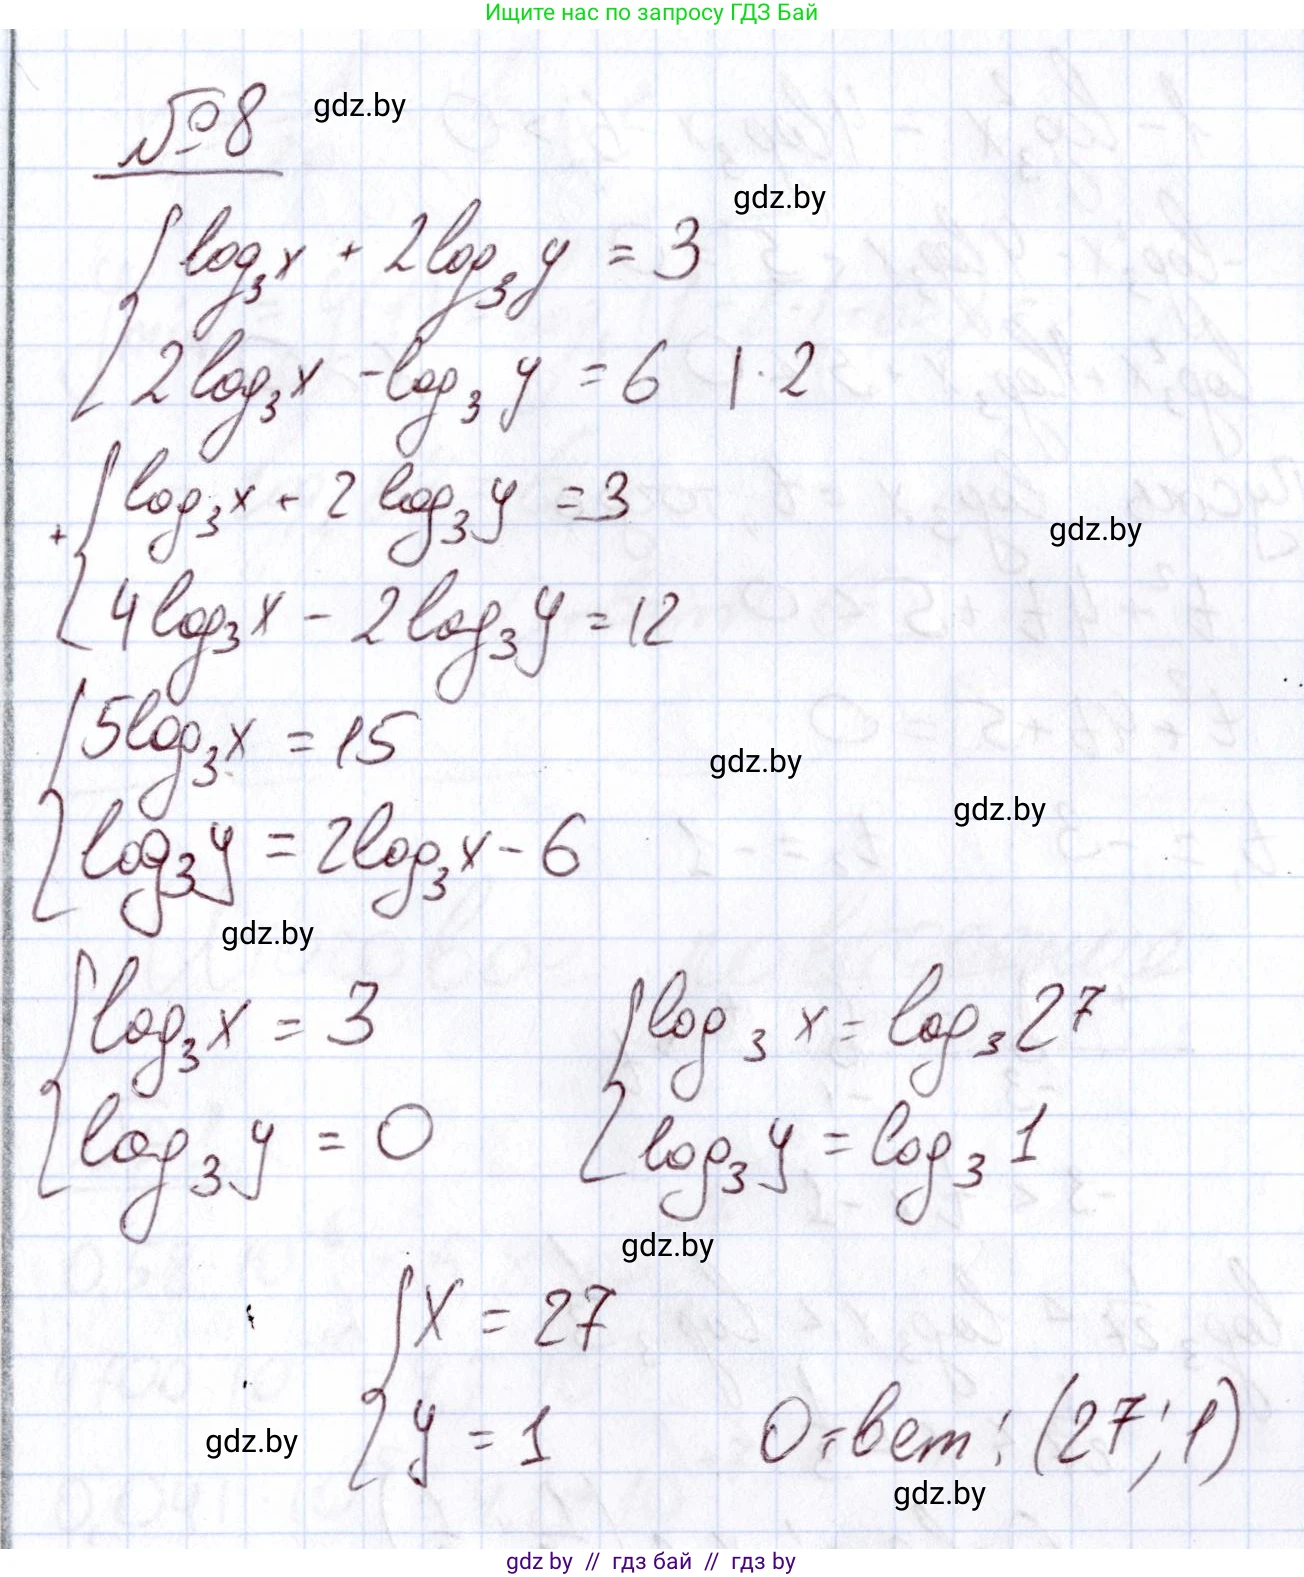 Ищите нас по запросу ГДЗ Бай
№8 gdz.by
gdz.by
log₃x + 2log₃y = 3
2log₃x - log₃y = 6 | · 2
log₃x + 2log₃y = 3
gdz.by
+
4log₃x - 2log₃y = 12
5log₃x = 15
gdz.by
gdz.by
log₃y = 2log₃x - 6
gdz.by
log₃x = 3 log₃x = log₃27
log₃y = 0 log₃y = log₃1
gdz.by
x = 27
y = 1 Ответ: (27; 1)
gdz.by
gdz.by
gdz by // гдз бай // гдз by